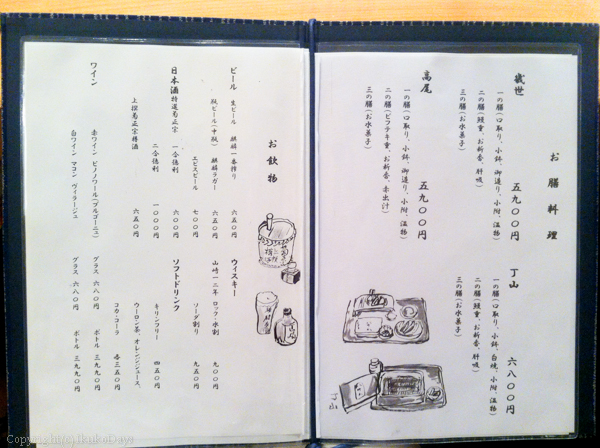 お膳料理
幾世
一の膳(口取り、小鉢、御造り、小附、温物)
二の膳(鰻重、お新香、肝吸)
三の膳(お水菓子)
五九〇〇円
高尾
一の膳(口取り、小鉢、御造り、小附、温物)
二の膳(ビフテキ重、お新香、赤出汁)
三の膳(お水菓子)
五九〇〇円
丁山
一の膳(口取り、小鉢、白焼、小附、温物)
二の膳(鰻重、お新香、肝吸)
三の膳(お水菓子)
六八〇〇円
お飲物
ビール
生ビール 麒麟一番搾り 六五〇円
瓶ビール(中瓶) 麒麟ラガー 六五〇円
ヱビスビール 七〇〇円
日本酒 特選菊正宗 一合徳利 六〇〇円
二合徳利 一〇〇〇円
上撰菊正宗樽酒 六五〇円
ワイン
赤ワイン ピノノワール(ブルゴーニュ) グラス 六八〇円 ボトル 三九〇〇円
白ワイン マコン ヴィラージュ グラス 六八〇円 ボトル 三九〇〇円
ウィスキー
山崎一二年 ロック・水割 九〇〇円
ソーダ割り 九五〇円
ソフトドリンク
キリンフリー 四五〇円
ウーロン茶、オレンジジュース、
コカ・コーラ 各三五〇円